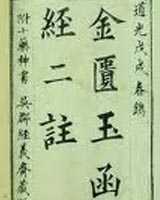 道光戊戌春鐫
金匱玉函
經二註
附十藥神書 吳郡經義齋藏